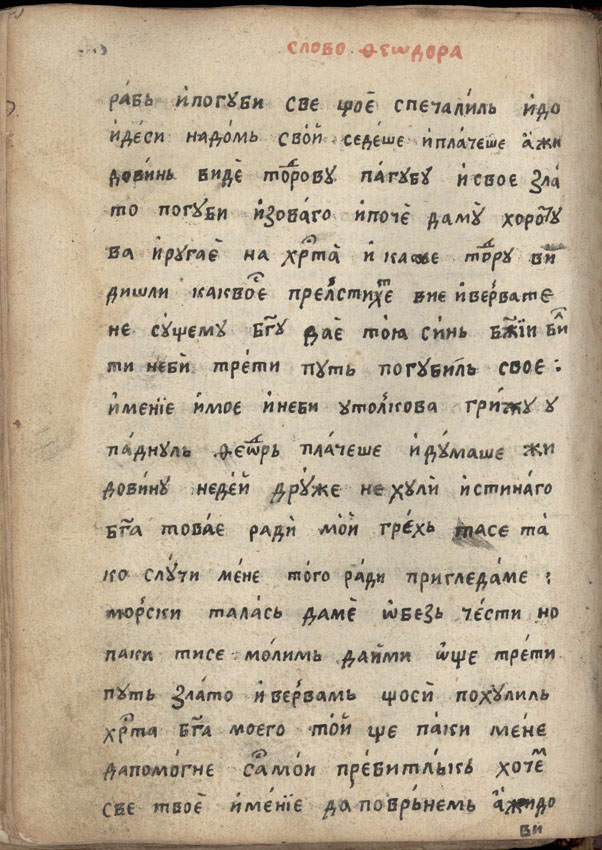 СЛОВО ѲЕѠДОРА
ра́бь и҆погꙋби све ѱоѐ спечали́ль и҆до
и҆де́си надо́мь сво́й седе́ше и҆пла́чеше а҆жи
дови́нь видѐ тѡ́рову па́губу и҆свое зла
то погуби и҆зова́го и҆почѐ дамꙋ̀ хорату
ва и҆ругаѐ на хрⷭ҇та̀ и҆ каже
дишли каквое прелⷭ҇тихте вие и҆ве́рвате
не сꙋ́щему бг҃ꙋ ваѐ то́ю си́нь бж҃їи
ти небѝ тре́ти пꙋть погꙋби́ль свое :
и҆ме́нїе и҆мое и҆неби ꙋтолкова гри́жу ꙋ
па́днуль ѳеѡ҆дⷪ҇рь пла́чеше и҆дꙋ́маше жи
дови́ну неде́й дрꙋ́же не хꙋлѝ и҆стина́го
бг҃а това́е радѝ мо́й гре́хь та́се та́
ко слꙋ́чи ме́не то́го ра́ди пригледа́ме :
мо́рски тала́сь дамѐ ѡ҆безь че́сти но
паки тисе мо́лимь да́йми ѡ҆ще тре́ти
пꙋ́ть зла́то и҆ве́рвамь щосѝ похꙋлиль
хрⷭ҇та бг҃а моего то́й ще па́ки ме́не
дапомо́гне са́мой хоче́м
све твоѐ и҆ме́нїе да повръ́немь а҆жидо
ви